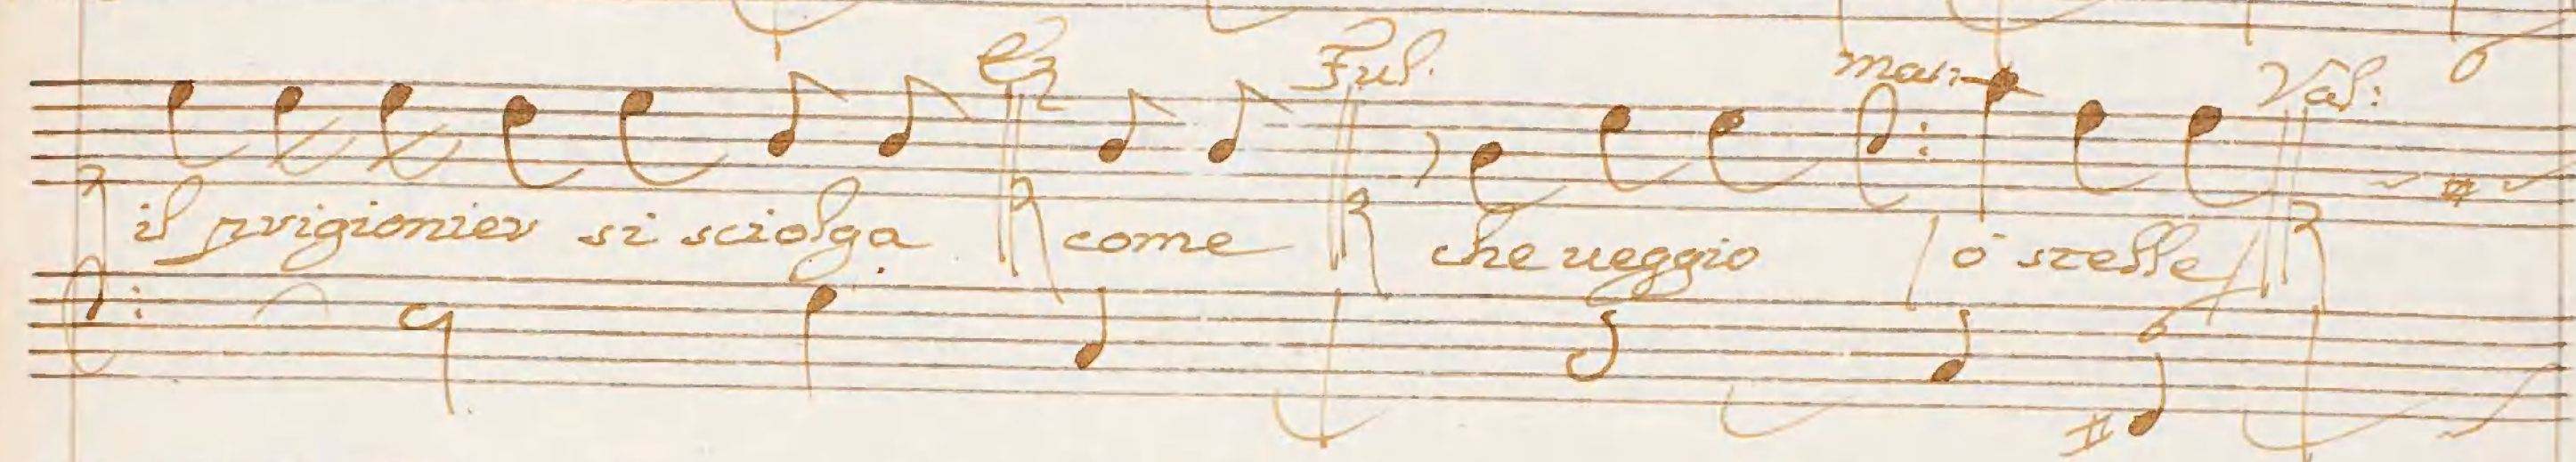 Ez Ful. mar: Val:
il prigionier si sciolga come che ueggio / o stelle /